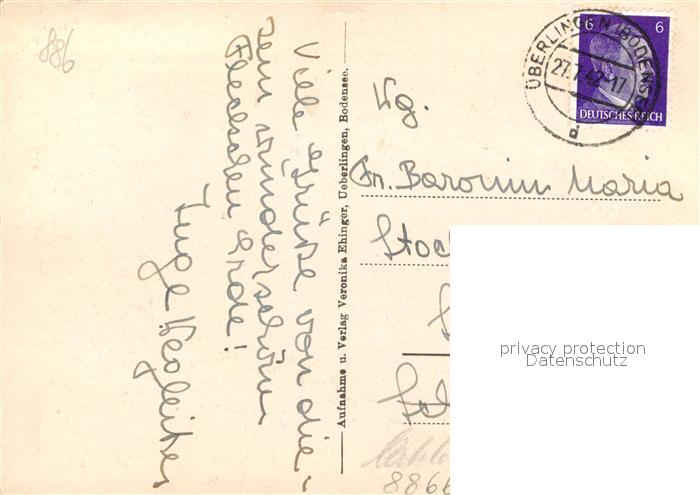 886
Viele Grüße von die-
sem wunderschönen
Fleckchen Erde!
Inge
Aufnahme u. Verlag Veronika Ehinger, Ueberlingen, Bodensee.
ÜBERLINGEN (BODENSEE)
27.7.42-17
d
6 6
DEUTSCHES REICH
Fr. Baronin Maria
privacy protection
Datenschutz